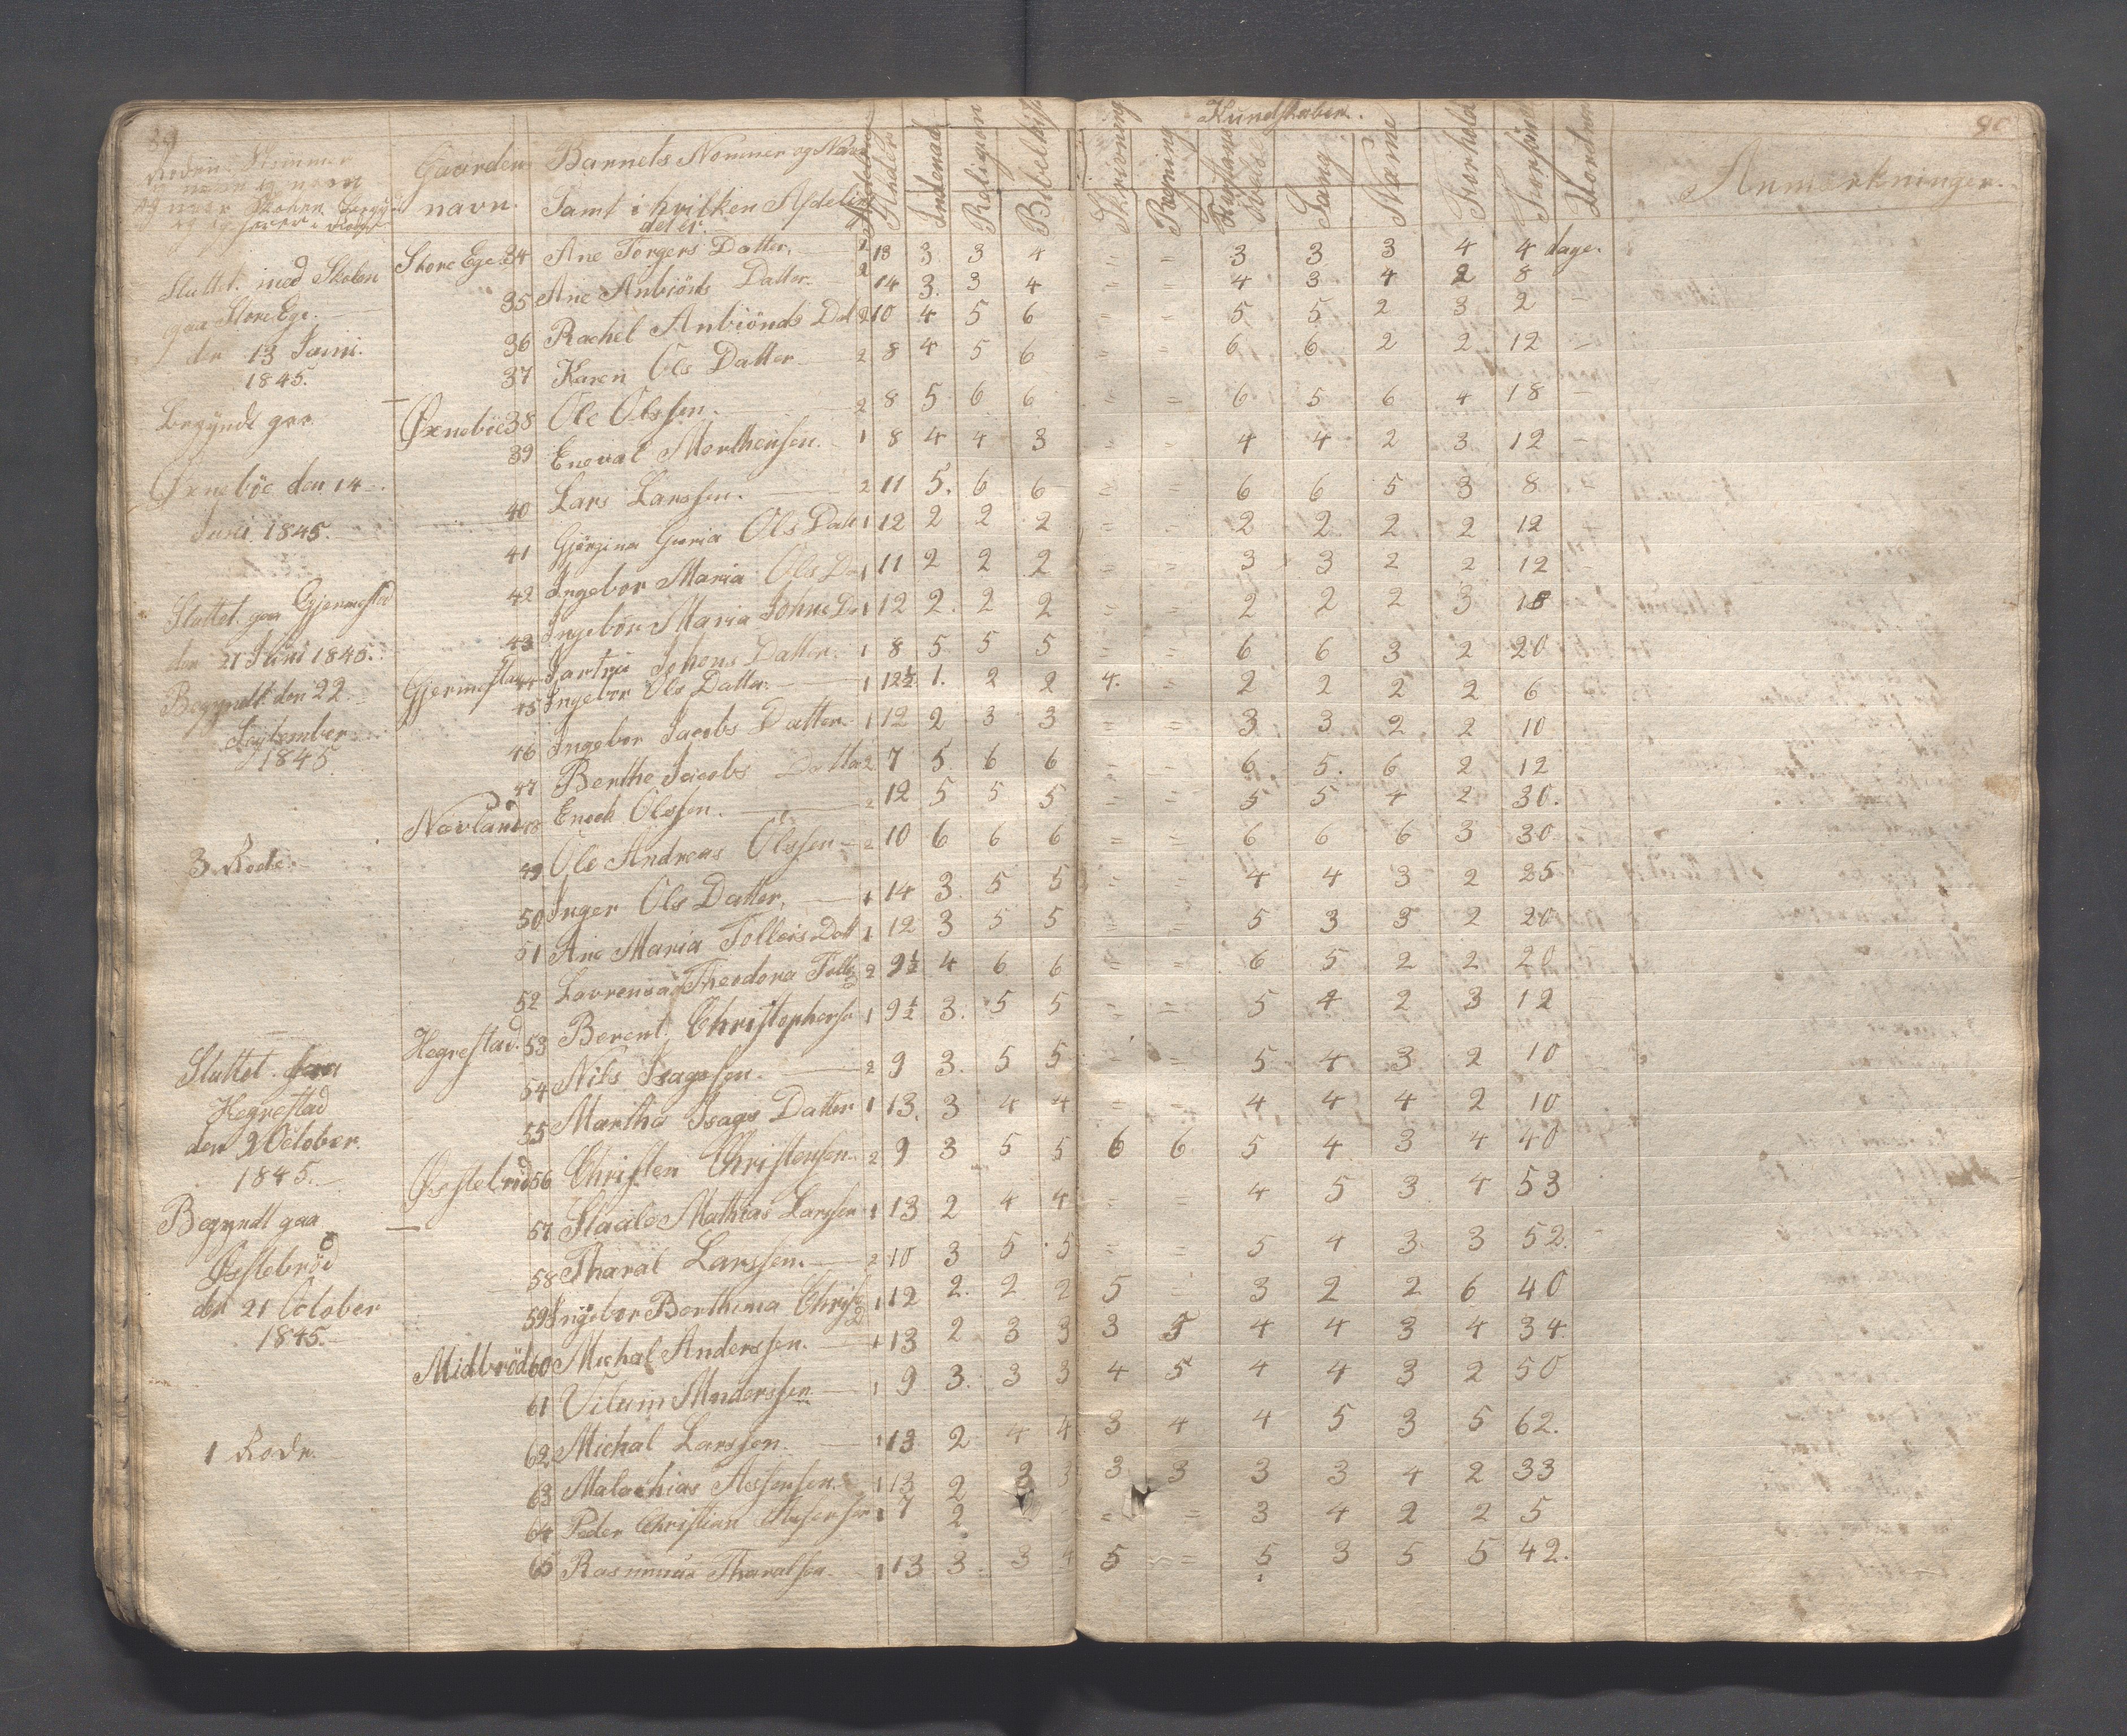 89
90
Kundskaber.
Rodens Nummer
Gaarden
navn.
Barnets Nommer og Navn
Samt i hvilken Afdeling
det er.
Alder
Indenad
Religion
Skrivning
Regning
Sang
Forhold
Anmærkninger.
Sluttet med Skolen Store Ege 34 Ane Torgers Datter. 1 18 3 3 4 = = 3 3 3 4 4 dage.
paa Store Ege. 35 Ane Anbiönds Datter 2 14 3. 3 4 = = 4 3 4 2 8
den 13 Juini. 36 Rachel Anbiönds Dat 2 10 4 5 6 = = 5 5 2 3 2 –
1845. 37 Karen Ols Datter 2 8 4 5 6 = = 6 6 2 2 12 –
Begyndt paa Øxneböe 38 Ole Olssen. 2 8 5 6 6 = = 6 5 6 4 18 –
39 Eneval Morthensen. 1 8 4 4 3 = = 4 4 2 3 12 –
Øxneböe den 14 40 Lars Larssen. 2 11 5. 6 6 = = 6 6 5 3 8 –
Juni 1845. 41 Gjörgina Guria Ols Datt 1 12 2 2 2 = = 2 2 2 2 12
42 Ingebor Maria Ols D 1 11 2 2 2 = = 3 3 2 2 12
Sluttet paa Gjermestad 43 Ingebor Maria Johns Da 1 12 2. 2 2 = = 2 2 2 3 18
den 21 Juni 1845. 44 Sartru Johons Datter. 1 8 5 5 5 = = 6 6 3 2 20
Begyndt den 22 Gjermestad 45 Ingebor Ols Datter. 1 12½ 1. 2 2 4. = 2 2 2 2 6
September 46 Ingebor Jacobs Datter 1 12 2 3 3 = = 3 3 2 2 10
1845 47 Berthe Jacobs Datter 2 7 5 6 6 = = 6 5. 6 2 12
Navland 48 Enock Olssen. 2 12 5 5 5 = = 5 5 4 2 30.
3 Rode. 49 Ole Andreas Olssen 2 10 6 6 6 = = 6 6 6 3 30
50 Inger Ols Datter. 1 14 3 5 5 = = 4 4 3 2 25
51 Ane Maria Tolleis Datt 1 12 3 5 5 = = 5 3 3 2 20
52 Lavrensa Theodora Tolle 2 9½ 4 6 6 = = 6 5 2 2 20
Hegrestad. 53 Berent Christophersen 1 9½ 3. 5 5 = = 5 4 2 3 12
Sluttet paa 54 Nils Isagssen. 2 9 3. 5 5 = = 5 4 3 2 10
Hegrestad 55 Martha Isags Datter 1 13. 3 4 4 = = 4 4 4 2 10
den 9 October. Øestebröd 56 Christen Christensen. 2 9 3 5 5 6 6 5 4 3 4 40
1845. 57 Staale Mathias Larssen 1 13 2 4 4 = = 4 5 3 4 53
Begyndt paa 58 Tharal Larssen. 2 10 3 5 5 = = 5 4 3 3 52.
Øestebröd 59 Ingebor Berthina Christ 1 12 2. 2 2 5 = 3 2 2 6 40
den 21 October Midbröd 60 Michal Anderssen. 1 13 2 3 3 3 5 4 4 3 4 34.
1845. 61 Vilum Anderssen. 1 9 3. 3 3 4 5 4 4 3 2 50
1 Rode. 62 Michal Larssen. 1 13 2 4 4 3 4 4 5 3 5 62.
63 Malachias Assensen. 1 13 2 3 3 3 3 3 3 4 2 33
64 Peder Christian 1 7 2 = = 3 4 2 2 5
65 Rasmus Tharalsen. 1 13 3 3 4 5 = 5 3 5 5 42.